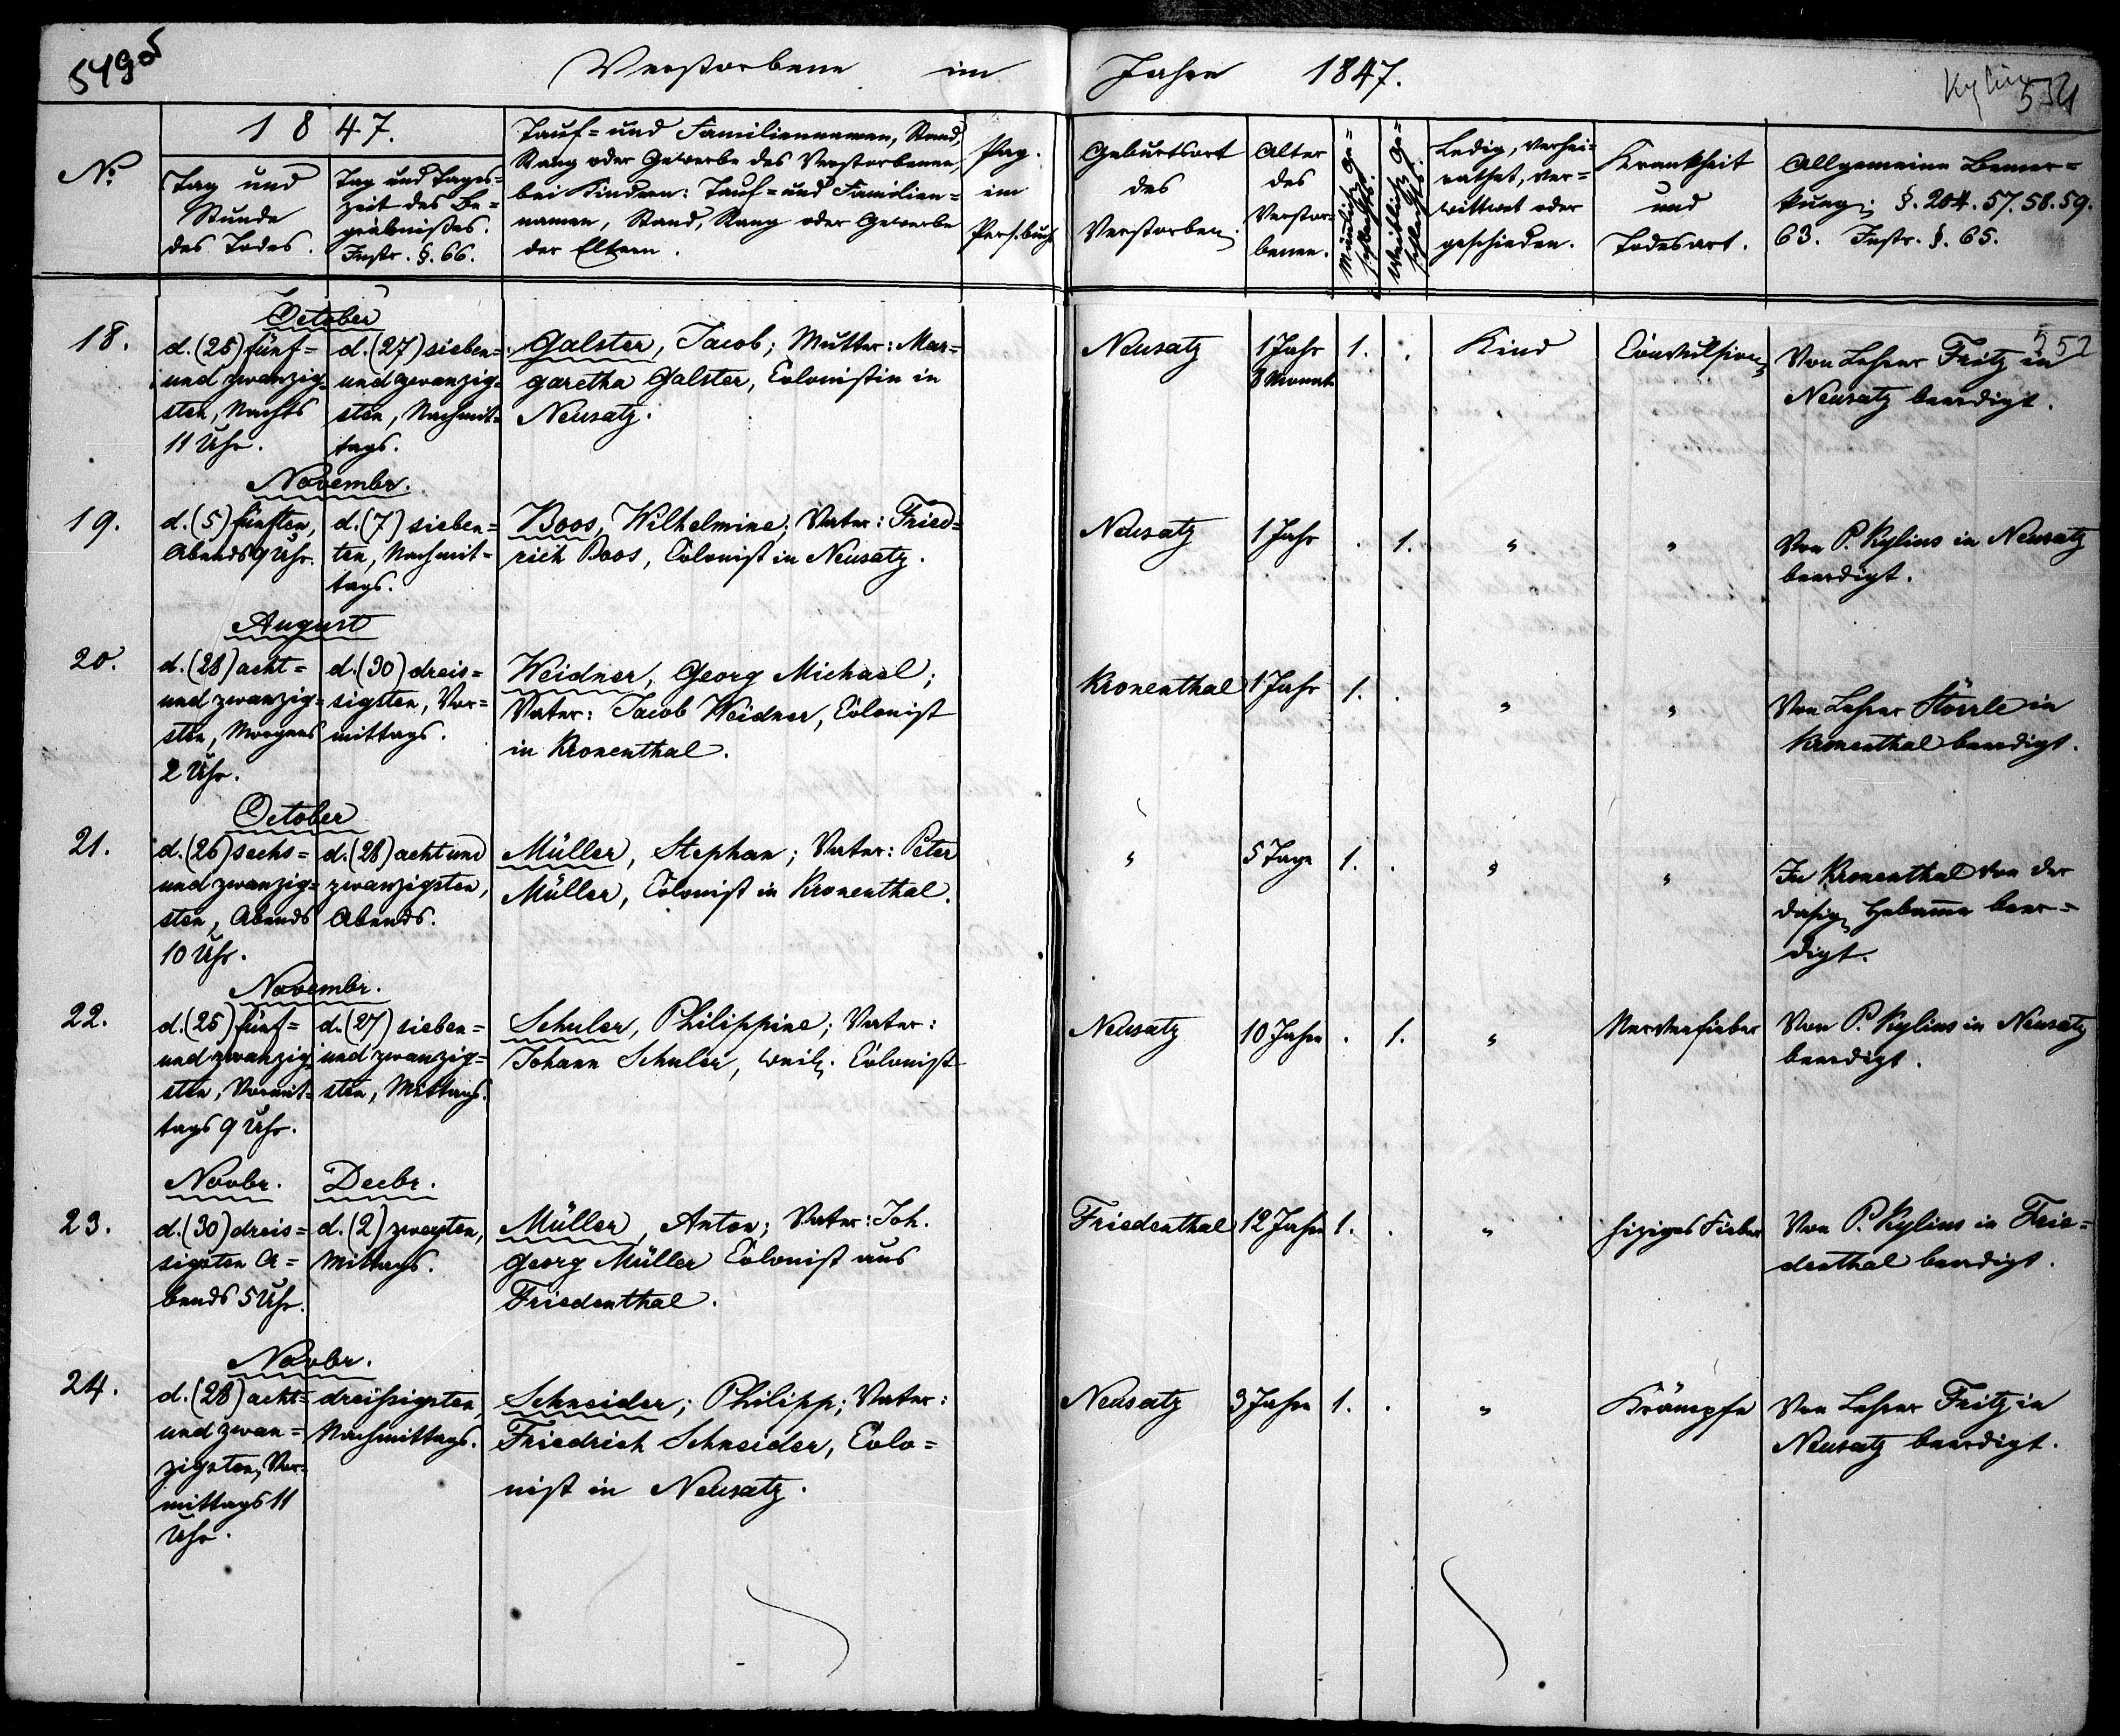 5490
Verstorbene im Jahre 1847.
534
No.
1847.
Tag und
Stunde
des Todes.
Tag und Tages-
zeit des Be-
gräbnißes.
Instr. §. 66.
Tauf- und Familiennamen, Stand,
Rang oder Gewerbe des Verstorbenen,
bei Kindern: Tauf- und Familien-
namen, Stand, Rang oder Gewerbe
der Eltern.
Pag.
im
Pers.buch
Geburtsort
des
Verstorben.
Alter
des
Verstor-
benen.
Männlich. Ge-
schlechts.
Weiblich. Ge-
schlechts.
Ledig, verhei-
rathet, ver-
wittwet oder
geschieden.
Krankheit
und
Todesart.
Allgemeine Bemer-
kung. §. 204. 57. 58. 59.
63. Instr. §. 65.
551
18.
October
d. (25) fünf-
und zwanzig-
sten, Nachts
11 Uhr.
d. (27) sieben-
und zwanzig-
sten, Nachmit-
tags.
Galster, Jacob; Mutter: Mar-
garetha Galster, Colonistin in
Neusatz.
Neusatz
1 Jahr
8 Monat
1.
.
Kind
Convulsion
Von Lehrer Fritz in
Neusatz beerdigt.
19.
Novembr.
d. (5) fünften,
Abends 9 Uhr.
d. (7) sieben-
ten, Nachmit-
tags.
Boos, Wilhelmine; Vater: Fried-
rich Boos, Colonist in Neusatz.
Neusatz
1 Jahr
.
1.
"
"
Von P. Kylius in Neusatz
beerdigt.
20.
August
d. (28) acht-
und zwanzig-
sten, Morgens
2 Uhr.
d. (30) dreis-
sigsten, Vor-
mittags.
Weidner, Georg Michael;
Vater: Jacob Weidner, Colonist
in Kronenthal.
Kronenthal
1 Jahr
1.
.
"
"
Von Lehrer Störrle in
Kronenthal beerdigt.
21.
October
d. (26) sechs-
und zwanzig-
sten, Abends
10 Uhr.
d. (28) acht und
zwanzigsten,
Abends.
Müller, Stephan; Vater: Peter
Müller, Colonist in Kronenthal.
"
5 Tage
1.
.
"
"
In Kronenthal von der
dasig. Hebam̄e beer-
digt.
22.
Novembr.
d. (25) fünf-
und zwanzig-
sten, Vormit-
tags 9 Uhr.
d. (27) sieben-
und zwanzig-
sten, Mittags.
Schuler, Philippine; Vater:
Johann Schuler, weil. Colonist
Neusatz
10 Jahre
.
1.
"
Nervenfieber
Von P. Kylius in Neusatz
beerdigt.
23.
Novbr.
Decbr.
d. (30) dreis-
sigsten A-
bends 5 Uhr.
d. (2) zweyten,
Mittags.
Müller, Anton; Vater: Joh.
Georg Müller Colonist aus
Friedenthal.
Friedenthal
12 Jahre
1.
.
"
hiziges Fieber
Von P. Kylius in Frie-
denthal beerdigt.
24.
Novbr.
d. (28) acht-
und zwan-
zigsten, Vor-
mittags 11
Uhr.
dreißigsten,
Nachmittags.
Schneider; Philipp; Vater:
Friedrich Schneider, Colo-
nist in Neusatz.
Neusatz
3 Jahre
1.
.
"
Krämpfe
Von Lehrer Fritz in
Neusatz beerdigt.